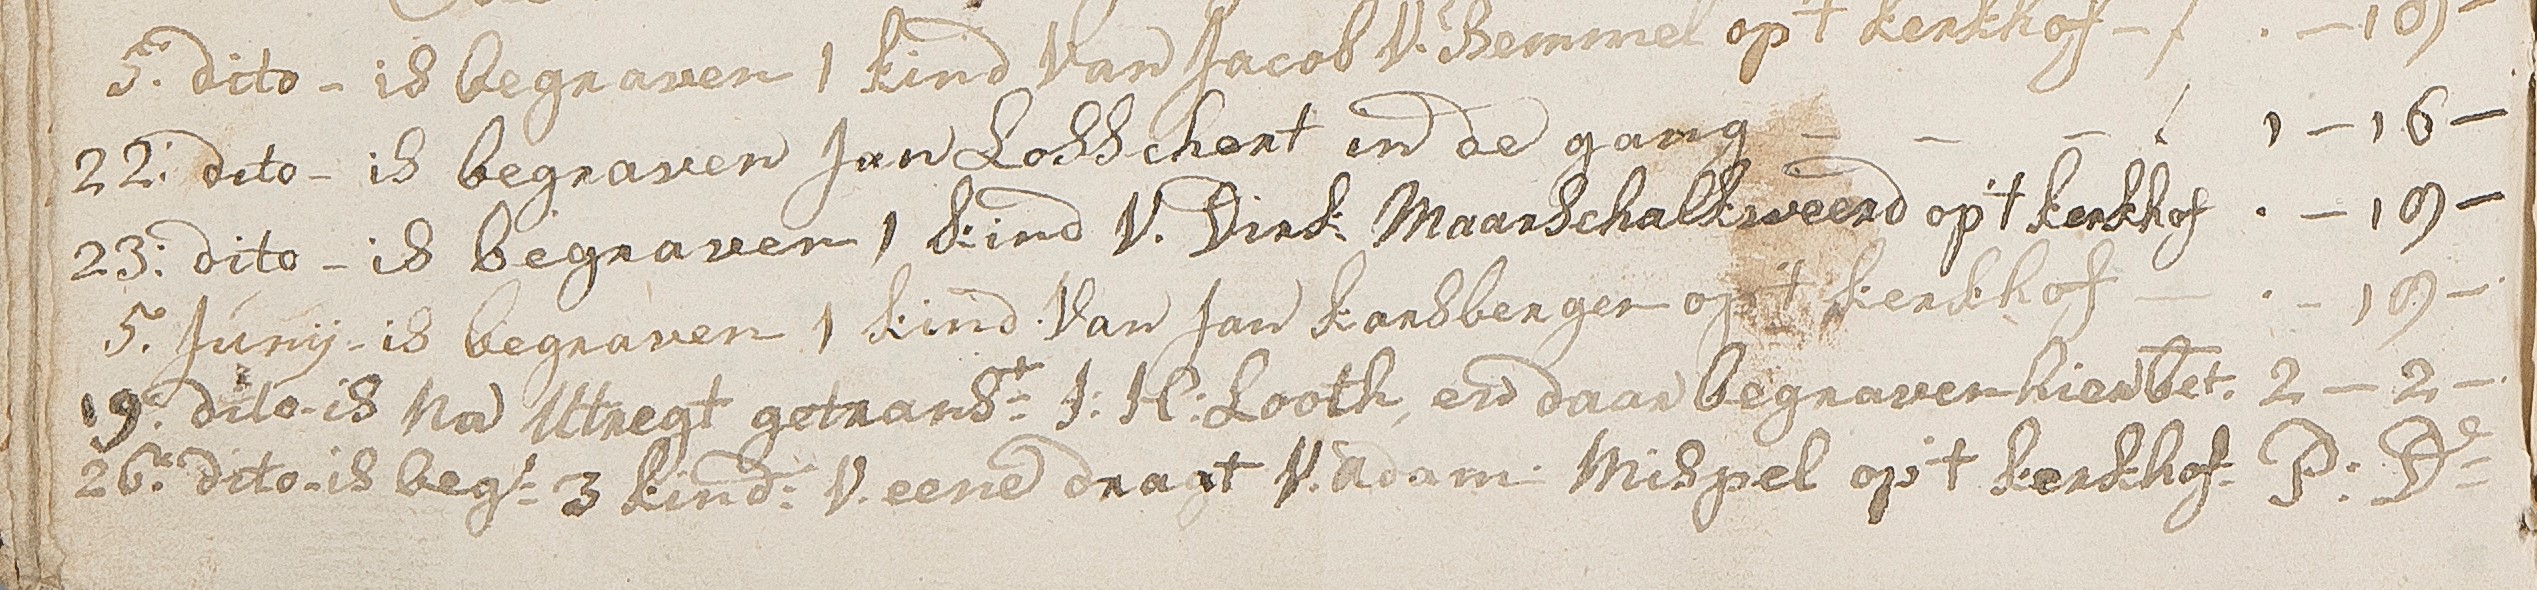 5. dito - is begraven 1 kind Van Jacob V. Bemmel op 't kerkhof - / . - 19 -
22: dito - is begraven Jan Losschert in de gang - - - / 1 - 16 -
23: dito - is begraven 1 kind V. Dirk Maarschalkweerd op 't kerkhof . - 19 -
5. Junij - is begraven 1 kind Van Jan karsbergen op 't kerkhof - . - 19 -
19. dito - is Na Uttregt getranst: J: H: Looth, en daar begraven hier bet. 2 - 2 -
26. dito - is begr: 3 kind: V. eene dragt V. Adam Mispel op 't kerkhof. P: De